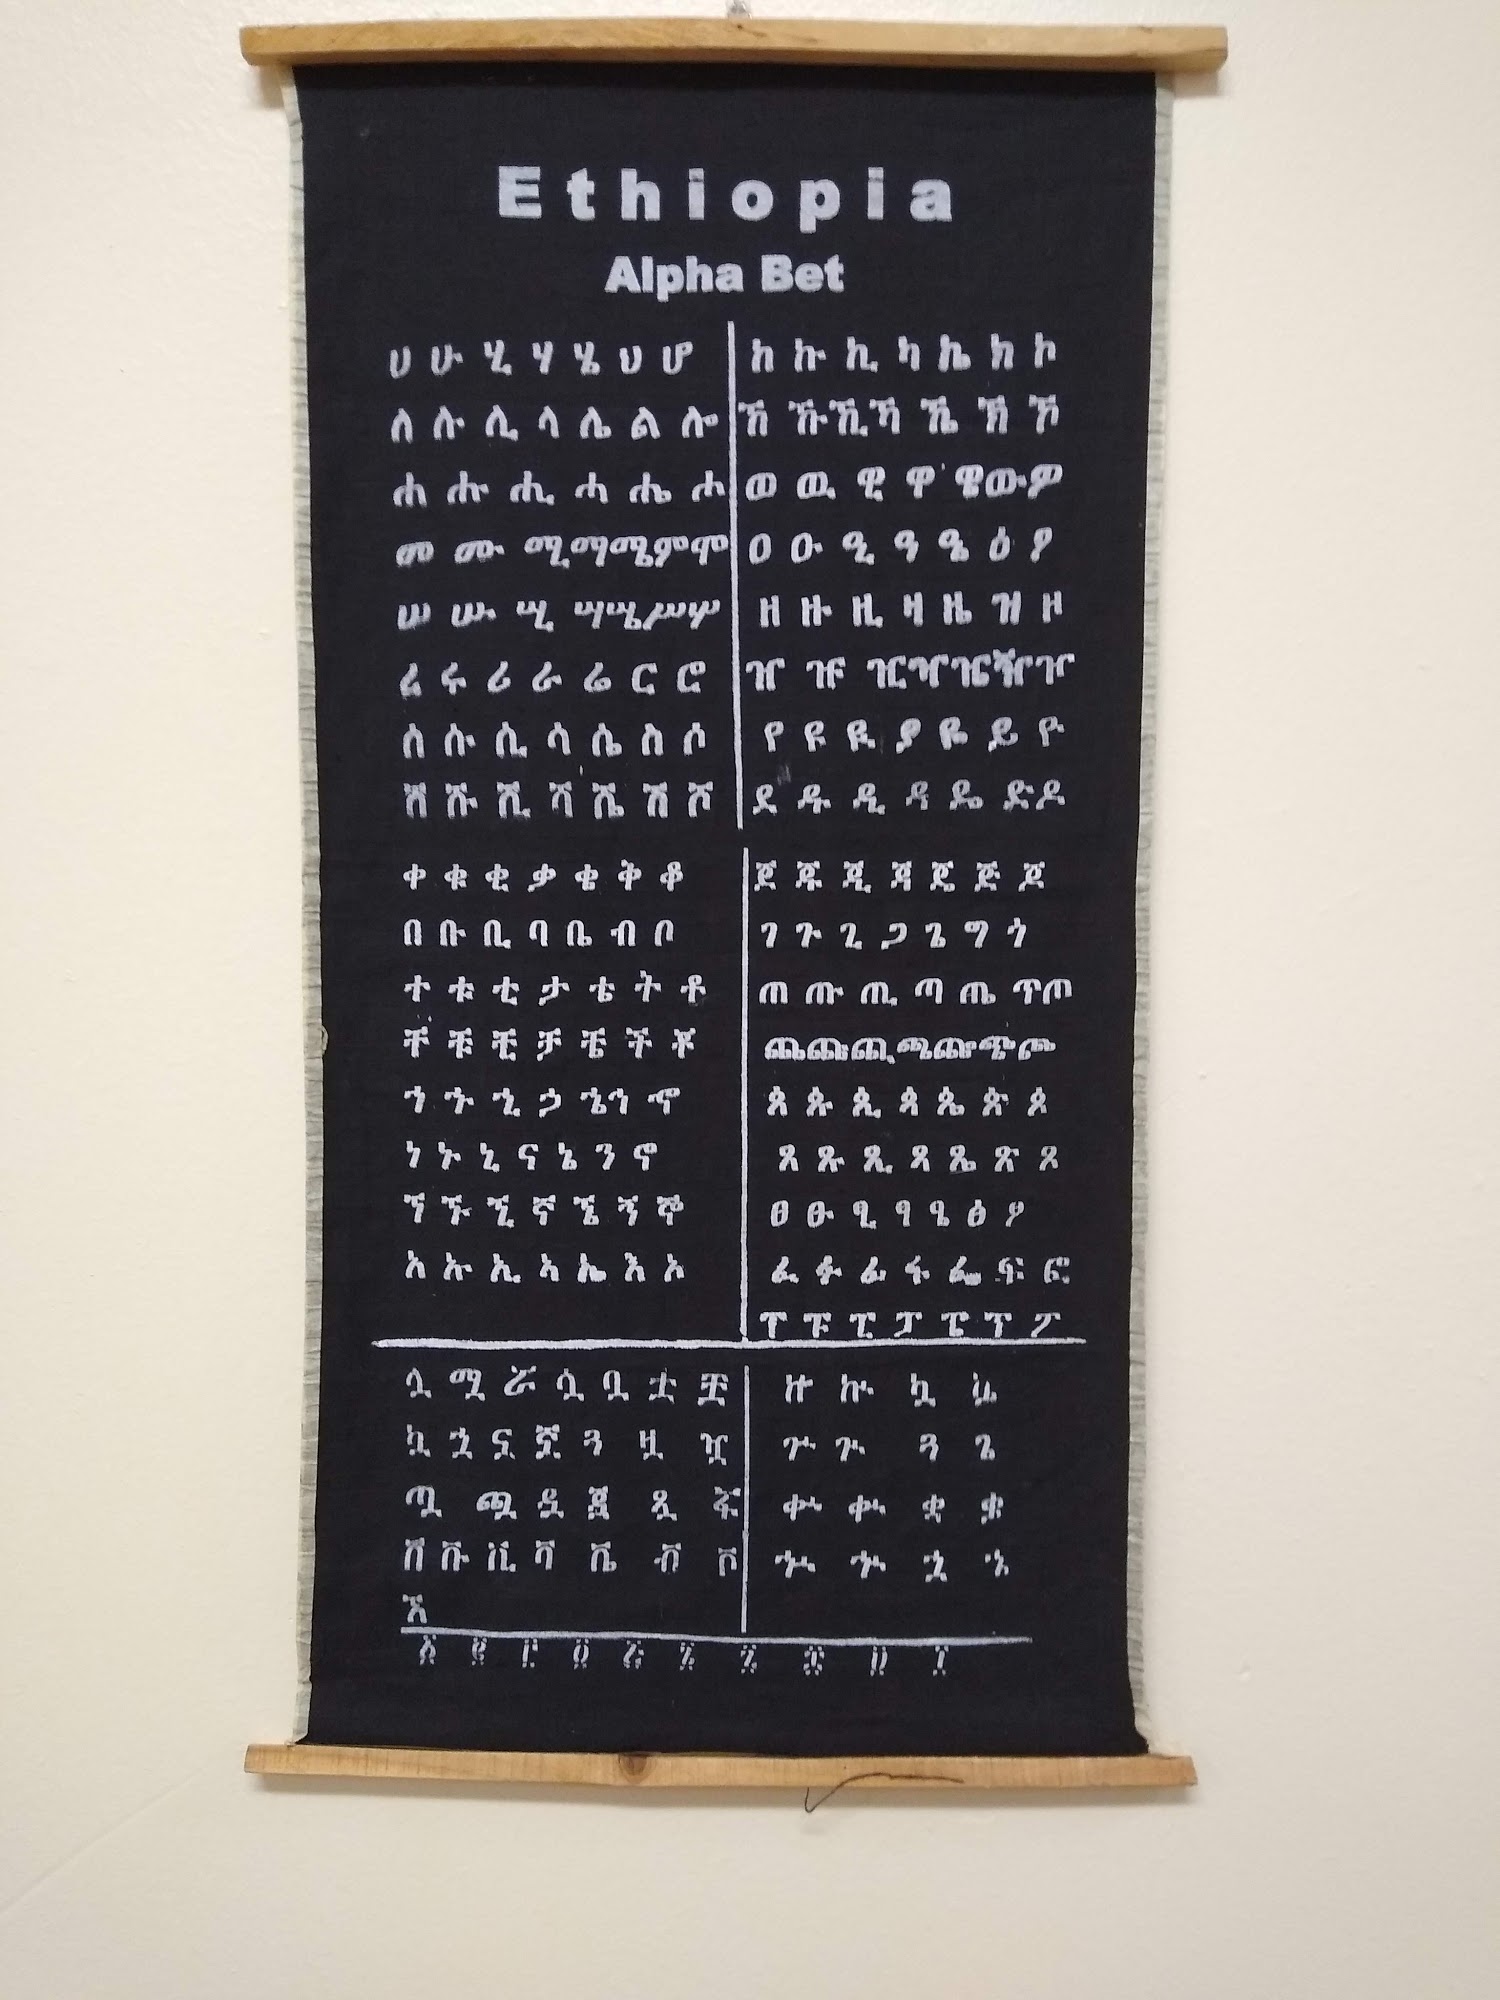 Ethiopia
Alpha Bet
ሀ ሁ ሂ ሃ ሄ ህ ሆ
ለ ሉ ሊ ላ ሌ ል ሎ
ሐ ሑ ሒ ሓ ሔ ሖ
መ ሙ ሚ ማ ሜ ም ሞ
ሠ ሡ ሢ ሣ ሤ ሥ ሦ
ረ ሩ ሪ ራ ሬ ር ሮ
ሰ ሱ ሲ ሳ ሴ ስ ሶ
ሸ ሹ ሺ ሻ ሼ ሽ ሾ
ከ ኩ ኪ ካ ኬ ክ ኮ
ኸ ኹ ኺ ኻ ኼ ኽ ኾ
ወ ዉ ዊ ዋ ዌ ው ዎ
ዐ ዑ ዒ ዓ ዔ ዕ ዖ
ዘ ዙ ዚ ዛ ዜ ዝ ዞ
ዠ ዡ ዢ ዣ ዤ ዥ ዠ
የ ዩ ዪ ያ ዬ ይ ዮ
ደ ዱ ዲ ዳ ዴ ድ ዶ
ቀ ቁ ቂ ቃ ቄ ቅ ቆ
በ ቡ ቢ ባ ቤ ብ ቦ
ተ ቱ ቲ ታ ቴ ት ቶ
ቸ ቹ ቺ ቻ ቼ ች ቾ
ኀ ኁ ኂ ኃ ኄ ኅ ኆ
ነ ኑ ኒ ና ኔ ን ኖ
ኘ ኙ ኚ ኛ ኜ ኝ ኞ
አ ኡ ኢ ኣ ኤ እ ኦ
ጀ ጁ ጂ ጃ ጄ ጅ ጆ
ገ ጉ ጊ ጋ ጌ ግ ጎ
ጠ ጡ ጢ ጣ ጤ ጥ ጦ
ጨ ጩ ጪ ጫ ጬ ጭ ጮ
ጰ ጱ ጲ ጳ ጴ ጵ ጶ
ጸ ጹ ጺ ጻ ጼ ጽ ጾ
ፀ ፁ ፂ ፃ ፄ ፅ ፆ
ፈ ፉ ፊ ፋ ፌ ፍ ፎ
ፐ ፑ ፒ ፓ ፔ ፕ ፖ
ሏ ሟ ሯ ሷ ቧ ቷ ቿ
ኳ ኋ ኗ ኟ ጓ ዟ ዧ
ጧ ጯ ዷ ጇ ጿ
ቨ ቩ ቪ ቫ ቬ ቭ ቮ
ኧ
ኰ ኲ ኳ ኴ
ጐ ጒ ጓ
ቈ ቊ ቋ ቌ
ኈ ኊ ኋ ኌ
፩ ፪ ፫ ፬ ፭ ፮ ፯ ፰ ፱ ፲